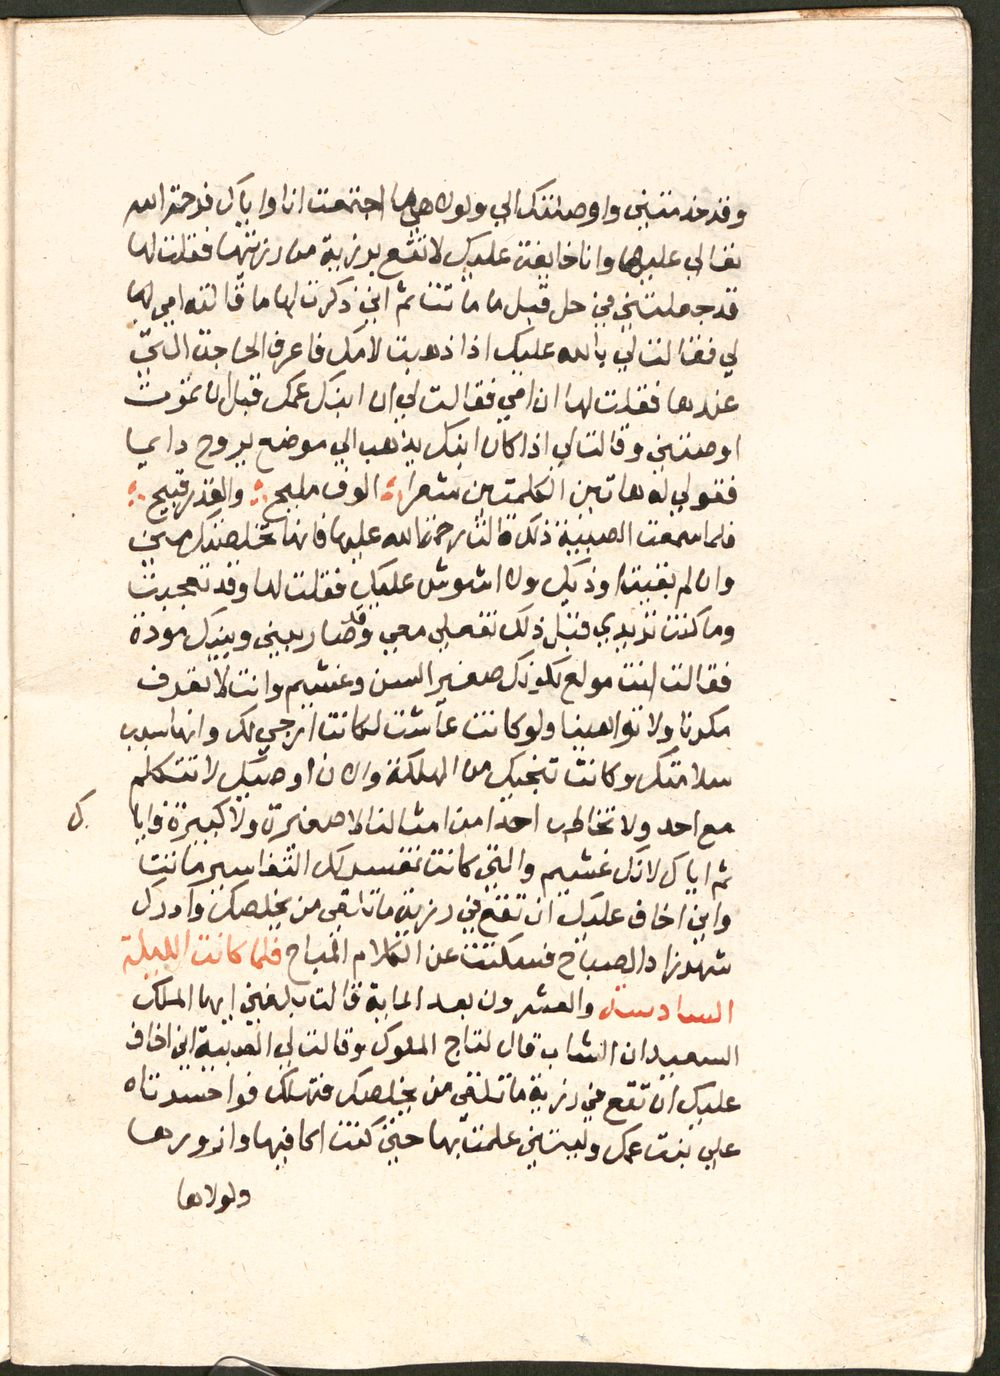 وقد خدمتني واوصلتك الي ولولاها ما اجتمعت انا واياك فرحمة الله
تعالي عليها وانا خايفة عليك لا تقع برزية من رزيتها فقلت لها
قد جعلتني في حل قبل ما ماتت ثم اني ذكرت لها ما قالته امي لها
لي فقالت لي بالله عليك اذا ذهبت لامك فاعرف الحاجة التي
عندها فقلت لها ان امي فقالت لي ان ابنك عمك قبل ان تموت
اوصتني وقالت لي اذا كان ابنك يذهب الي موضع يروح دايما
فقولي له هاتين الكلمتين شعرا الوفا مليح والغدر قبيح
فلما سمعت الصبية ذلك قالت رحمة الله عليها فانها خلصتك مني
وان لم بقيت اوذيك ولا اشوش عليك فقلت لها وقد تعجبت
وما كنت تريدي قبل ذلك تفعلي معي وقد صار بيني وبينك مودة
فقالت انت مولع بكونك صغير السن وغشيم وانت لا تعرف
مكرنا ولا دواهينا ولو كانت عاشت لكانت ارجي لك وانها سبب
سلامتك وكانت تنجيك من الهلكة والان اوصيك لا تتكلم
مع احد ولا تخاطب احدا من امثالنا لا صغيرة ولا كبيرة فايا
ك
ثم اياك لانك غشيم والتي كانت تفسر لك التفاسير ماتت
واني اخاف عليك ان تقع في رزية ما تلقي من يخلصك وادرك
شهرزاد الصباح فسكتت عن الكلام المباح فلما كانت الليلة
السادسة والعشرون بعد الماية قالت بلغني ايها الملك
السعيد ان الشاب قال لتاج الملوك وقالت لي الصبية اني اخاف
عليك ان تقع في رزية ما تلقي من يخلصك فتهلك فواحسرتاه
علي بنت عمك وليتني علمت بها حتي كنت اكافيها وازورها
ولولاها